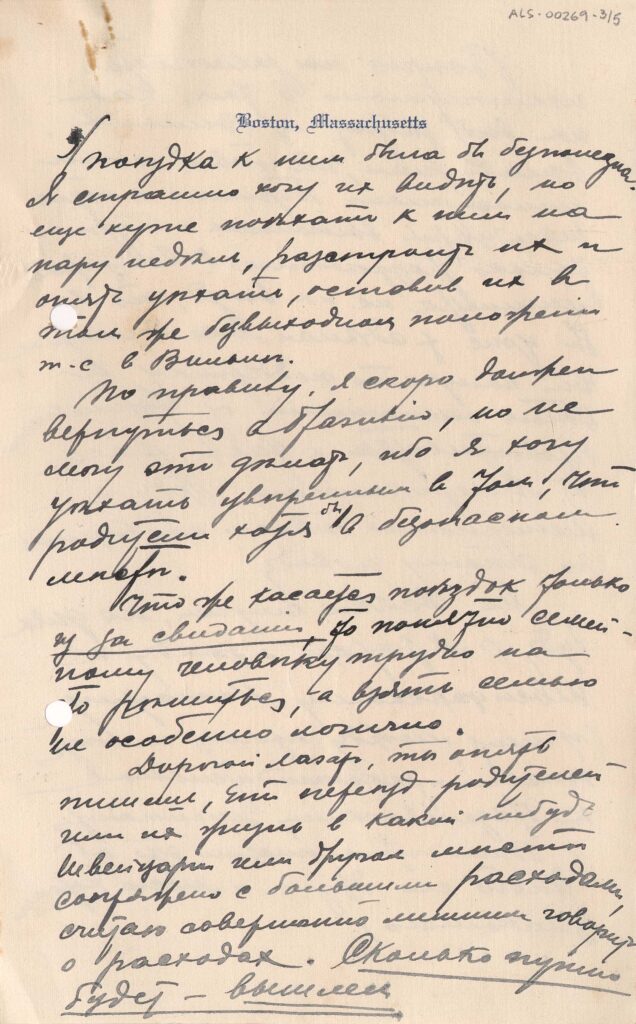 ALS-00269-3/5
Boston, Massachusetts
поездка к ним была бы безполезна.
Я страшно хочу их видеть, но
еще хуже поехать к ним на
пару недель, разстроить их и
опять уехать, оставив их в
том же безвыходном положении
т-е в Вильне.
По правилу, я скоро должен
вернуться в Бразилию, но не
могу это сделать, ибо я хочу
уехать уверенным в том, что
родители хотя бы в безопасном
месте.
Что же касается поездок только
из за свидания, то понятно семей-
ному человеку трудно на
то решиться, а взять семью
не особенно логично.
Дорогой Лазарь, ты опять
пишешь, что переезд родителей
или их жизнь в какой нибудь
Швейцарии или другом месте
сопряжено с большими расходами,
считаю совершенно лишним говорить
о расходах. Сколько нужно
будет – вышлем